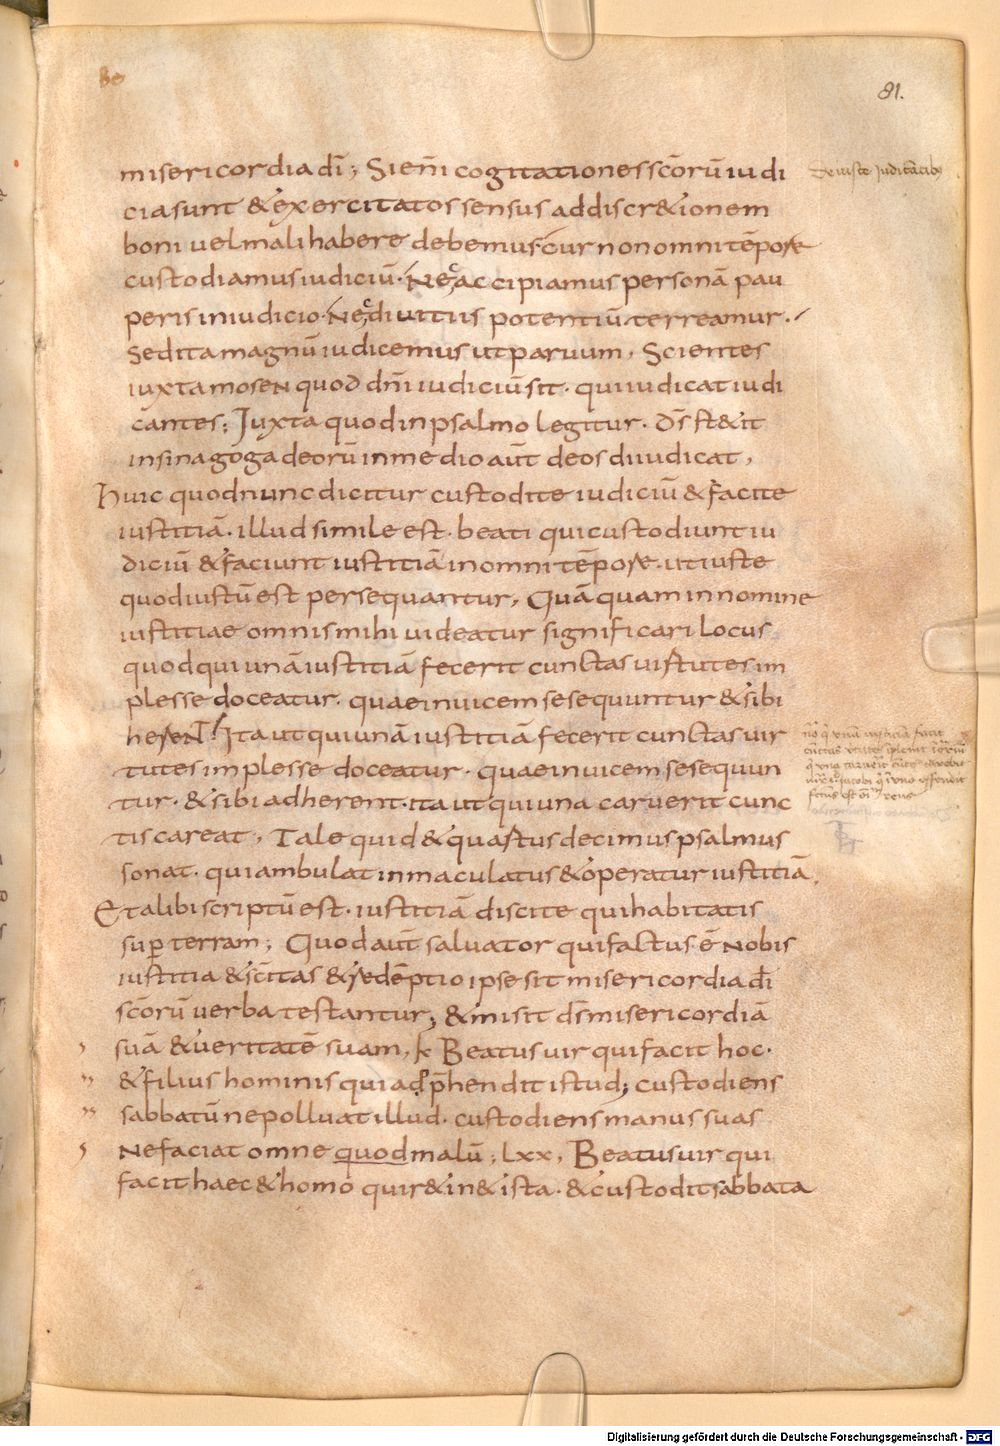 80
81.
misericordia dī; Si eni̅ cogitationes sc̄orū iudi
cia sunt & exercitatos sensus ad discr&ionem
boni uel mali habere debemus. cur non omni tēpore
custodiamus iudiciū. Neq; accipiamus personā pau
peris in iudicio. Neq; diuitiis potentiū terreamur.
Sed ita magnū iudicemus ut paruum, Scientes
iuxta mosen quod dn̄i iudiciū sit. qui iudicat iudi
cantes; Iuxta quod in psalmo legitur. Ds̄ st&it
in sinagoga deorū in medio aūt deos diiudicat,
Huic quod nunc dicitur custodite iudiciū & facite
iustitiā. illud simile est. beati qui custodiunt iu
diciū & faciunt iustitiā in omni tēpore. ut iuste
quod iustū est persequantur, Quāquam in nomine
iustitiae omnis mihi uideatur significari locus
quod qui unā iustitiā fecerit cunctas uirtutes im
plesse doceatur. quae inuicem se sequuntur & sibi
herent. Ita ut qui unā iustitiā fecerit cunctas uir
tutes implesse doceatur. quae inuicem se sequun
tur. & sibi adherent. ita ut qui una caruerit cunc
tis careat, Tale quid & quartus decimus psalmus
sonat. qui ambulat inmaculatus & operatur iustitiā,
Et alibi scriptū est. iustitiā discite qui habitatis
sup̄ terram; Quod aūt saluator qui factus ē nobis
iustitia & sc̄itas & redēptio ipse sit misericordia dī
sc̄orū uerba testantur; & misit ds̄ misericordiā
suā & ueritatē suam, Beatus uir qui facit hoc.
& filius hominis qui adp̄hendit istud; custodiens
sabbatū ne polluat illud. custodiens manus suas
Ne faciat omne quod malū; lxx, Beatus uir qui
facit haec & homo qui r&in& ista. & custodit sabbata
De iuste Judicātib;
Digitalisierung gefördert durch die Deutsche Forschungsgemeinschaft - DFG